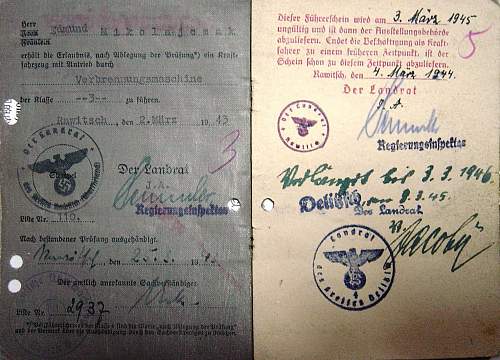 Herr
Frau Edmund Mikolajczak
Fräulein
erhält die Erlaubnis, nach Ablegung der Prüfung*) ein Kraft-
fahrzeug mit Antrieb durch
Verbrennungsmaschine
der Klasse --3-- zu führen.
Rawitsch, den 2.März 1943
3
Der Landrat
Stempel
Der Landrat
J.A.
Semmler
Regierungsinspektor
Liste Nr. 110.
Nach bestandener Prüfung ausgehändigt.
, den
Der amtlich anerkannte Sachverständige
Liste Nr. 2937
Dieser Führerschein wird am 3. März 1945
ungültig und ist dann der Einstellungsbehörde
abzuliefern. Endet die Beschäftigung als Kraft-
fahrer zu einem früheren Zeitpunkt, ist der
Schein schon zu diesem Zeitpunkt abzuliefern.
5
Rawitsch, den 4. März 1944.
Der Landrat
J.A.
Der Landrat
Semmler
Regierungsinspektor
Verlängert bis 3.3.1946
Delitzsch, den 8.3.45.
Der Landrat
Jacoby
Landrat
des Kreises Delitzsch
4